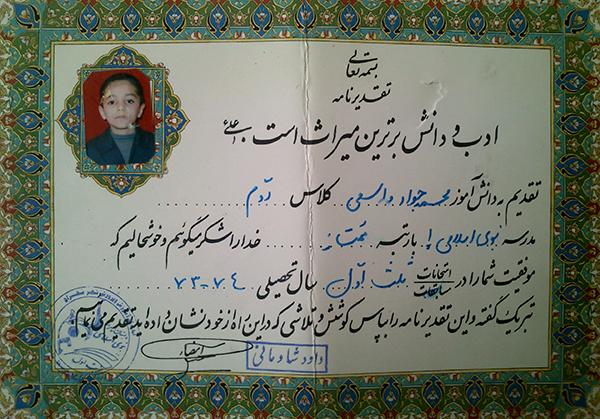 بسمه تعالی
تقدیرنامه
ادب و دانش برترین میراث است
تقدیم به دانش آموز محمد جواد واسعی کلاس دوم
مدرسه نبوی اسلامی با رتبه ممتاز خدا را شکر میگوئیم و خوشحالیم که
موفقیت شما را در امتحانات مسابقات ثلث اول سال تحصیلی ۷۴-۷۳
تبریک گفته و این تقدیرنامه را بپاس کوشش و تلاشی که در این راه از خود نشان داده اید تقدیم می نمائیم
داود شادمانی